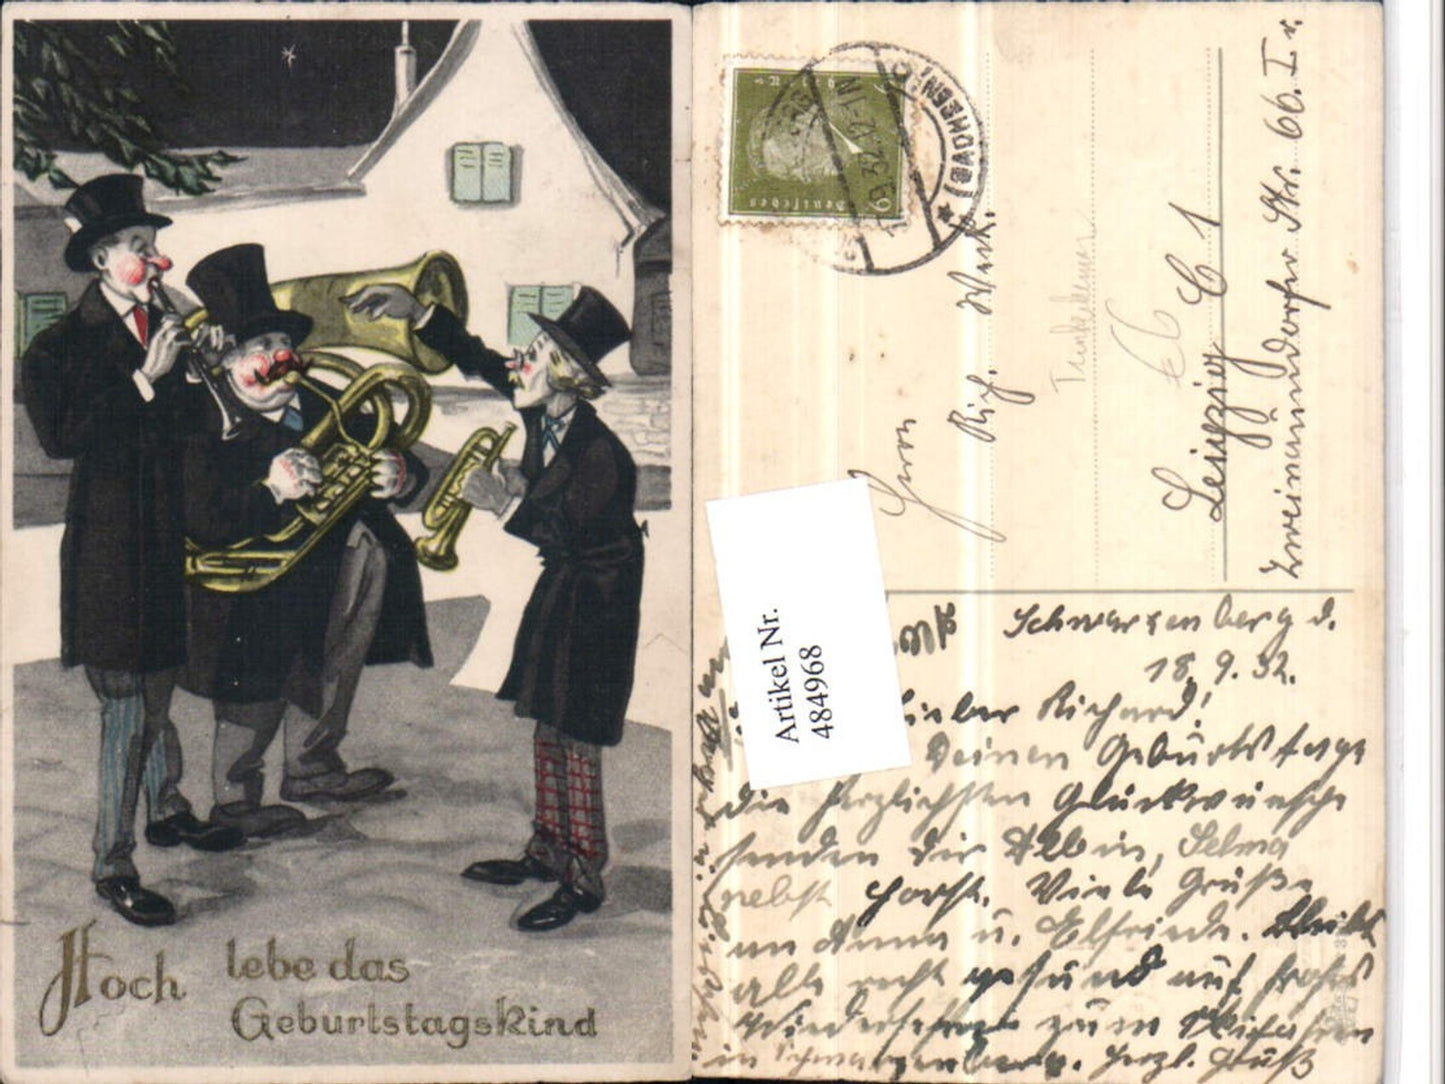 Hoch lebe das
Geburtstagskind
Deutsches
19.9.32.12-1N
Herrn
Rich. Weck.
Leipzig C 1
Zweinaundorfer Str. 66. I r.
Artikel Nr.
484968
Schwarzenberg d.
18.9.32.
Lieber Richard!
Deinen Geburtstage
die herzlichsten Glückwünsche
senden Dir Albin, Selma
nebst Horst. Viele Grüße
an Anna u. Elfriede. Bleibt
alle recht gesund auf frohes
Wiedersehen zum
in Schwarzenberg. Herzl. Gruß